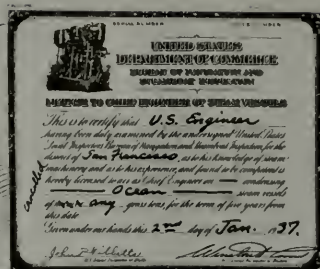 SERIAL NUMBER
UNITED STATES
DEPARTMENT OF COMMERCE
BUREAU OF NAVIGATION AND
STEAMBOAT INSPECTION
LICENSE TO CHIEF ENGINEER OF STEAM VESSELS
This is to certify that U.S. Engineer
having been duly examined by the undersigned United States
Local Inspectors Bureau of Navigation and Steamboat Inspection, for the
district of San Francisco, as to his knowledge of steam
machinery and as to his experience, and found to be competent is
hereby licensed to act as Chief Engineer on condensing
Ocean steam vessels
of any gross tons, for the term of five years from
this date
Given under our hands this 2nd day of Jan. 1937.
cancelled